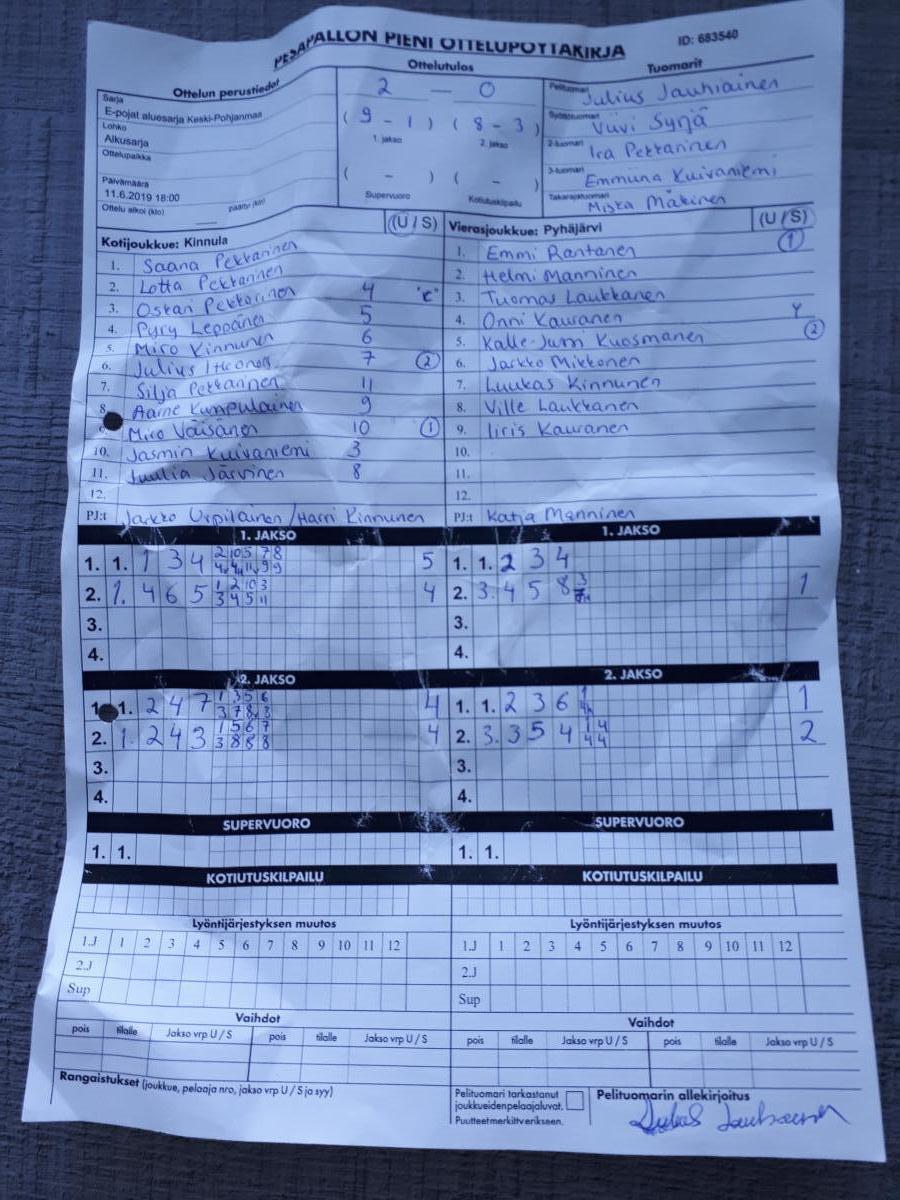 PESÄPALLON PIENI OTTELUPÖYTÄKIRJA
ID: 683540
Ottelun perustiedot
Ottelutulos
Tuomarit
Sarja
E-pojat aluesarja Keski-Pohjanmaa
Lohko
Alkusarja
Ottelupaikka
Päivämäärä
11.6.2019 18:00
Ottelu alkoi (klo) päättyi (klo)
2 — 0
( 9 - 1 ) ( 8 - 3 )
1. jakso 2. jakso
( - ) ( - )
Supervuoro Kotiutuskilpailu
Pelituomari Julius Jauhiainen
Syöttötuomari Viivi Syrjä
2-tuomari Ira Pekkarinen
3-tuomari Emmiina Kuivaniemi
Takarajatuomari Miska Mäkinen
Kotijoukkue: Kinnula (U / S)
1. Saana Pekkarinen
2. Lotta Pekkarinen
3. Oskari Pekkarinen 4 "C"
4. Pyry Leppänen 5
5. Miro Kinnunen 6
6. Julius 7 2
7. Silja Pekkarinen 11
8. Aarne Kumpulainen 9
9 Miro Väisänen 10 1
10. Jasmin Kuivaniemi 3
11. Tuulia Järvinen 8
12.
PJ:t Jarkko Urpilainen / Harri Kinnunen
Vierasjoukkue: Pyhäjärvi (U / S)
1. Emmi Rantanen 1
2. Helmi Manninen
3. Tuomas Laukkanen
4. Onni Kauranen
5. Kalle-Jum Kuosmanen 2
6. Jarkko Mikkonen
7. Luukas Kinnunen
8. Ville Laukkanen
9. Iiris Kauranen
10.
11.
12.
PJ:t Katja Manninen
1. JAKSO
1. 1. 1 3 4 5
2. 1. 4 6 5 4
3.
4.
1. JAKSO
1. 1. 2 3 4
2. 3. 4 5 8 1
3.
4.
2. JAKSO
1. 1. 2 4 7 4
2. 1. 2 4 3 4
3.
4.
2. JAKSO
1. 1. 2 3 6 1
2. 3. 3 5 4 2
3.
4.
SUPERVUORO
1. 1.
SUPERVUORO
1. 1.
KOTIUTUSKILPAILU
KOTIUTUSKILPAILU
Lyöntijärjestyksen muutos
1.J 1 2 3 4 5 6 7 8 9 10 11 12
2.J
Sup
Lyöntijärjestyksen muutos
1.J 1 2 3 4 5 6 7 8 9 10 11 12
2.J
Sup
Vaihdot
pois tilalle Jakso vrp U / S pois tilalle Jakso vrp U / S
Vaihdot
pois tilalle Jakso vrp U / S pois tilalle Jakso vrp U / S
Rangaistukset (joukkue, pelaaja nro, jakso vrp U / S ja syy)
Pelituomari tarkastanut
joukkueidenpelaajaluvat.
Puutteet merkitty erikseen.
Pelituomarin allekirjoitus